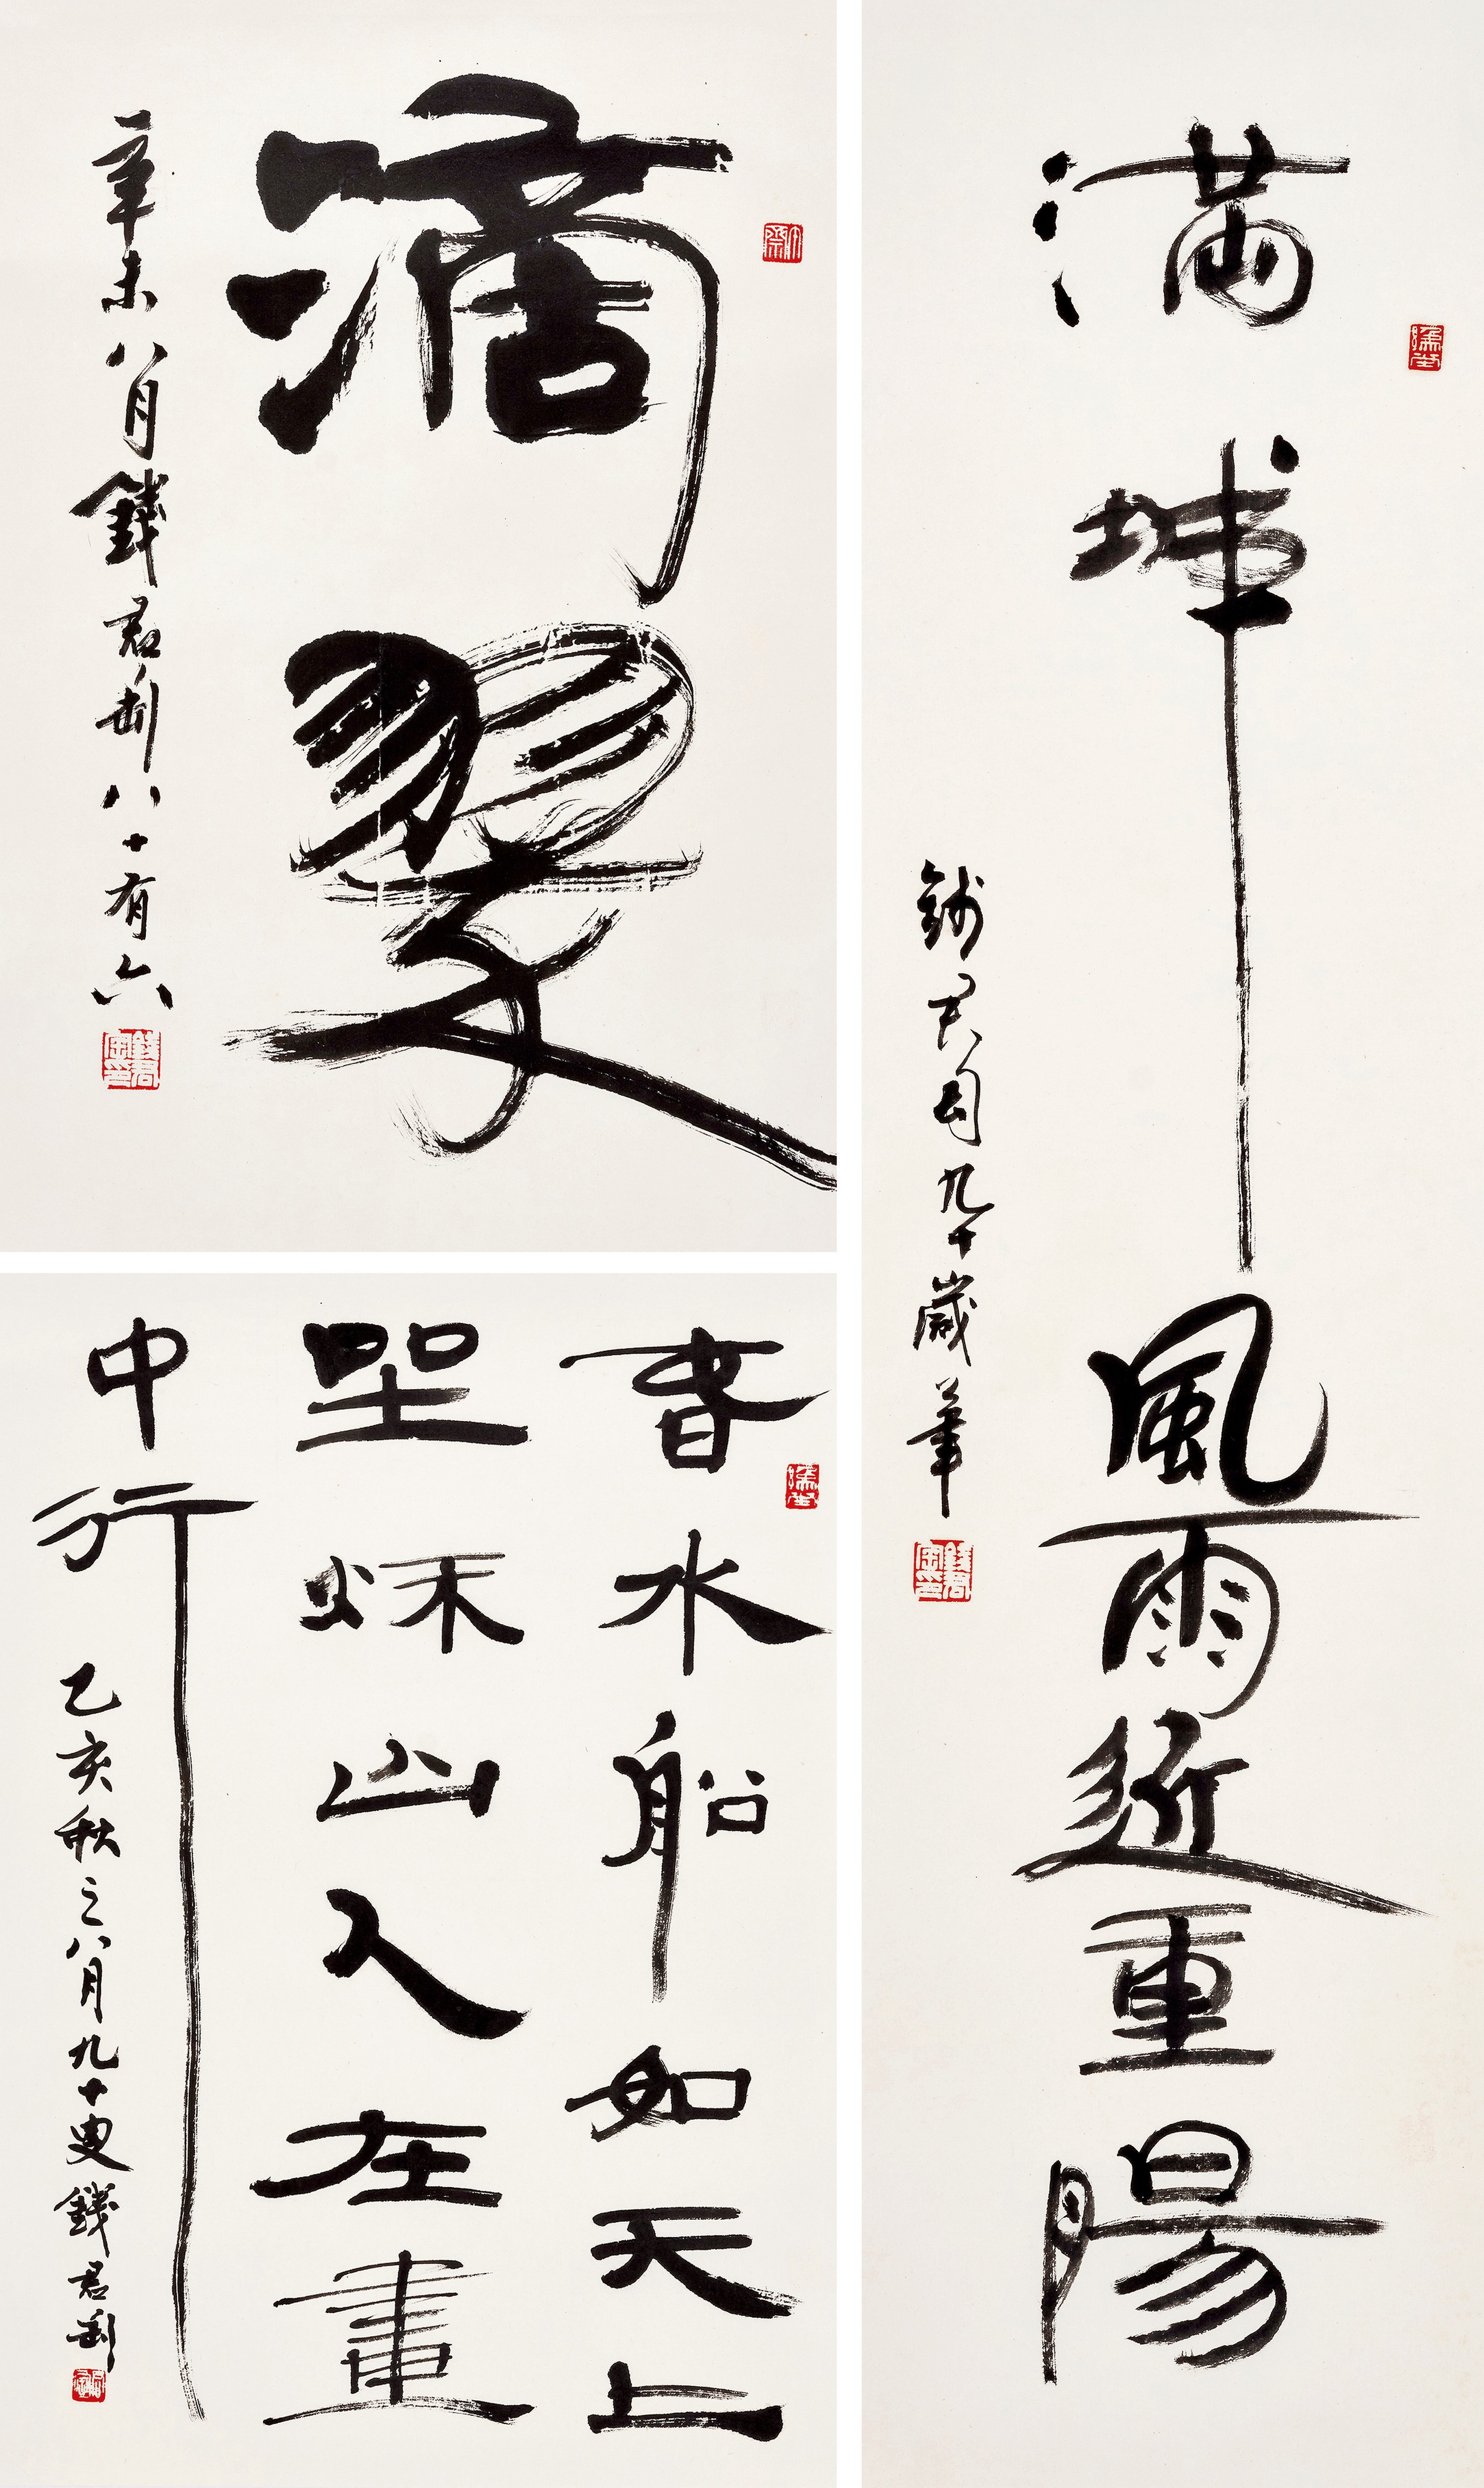 滴翠
辛未八月錢君匋八十有六
春水船如天上
坐姝山人在畫
中行
乙亥秋之八月九十叟錢君匋
滿城風雨近重陽
錢君匋九十歲筆